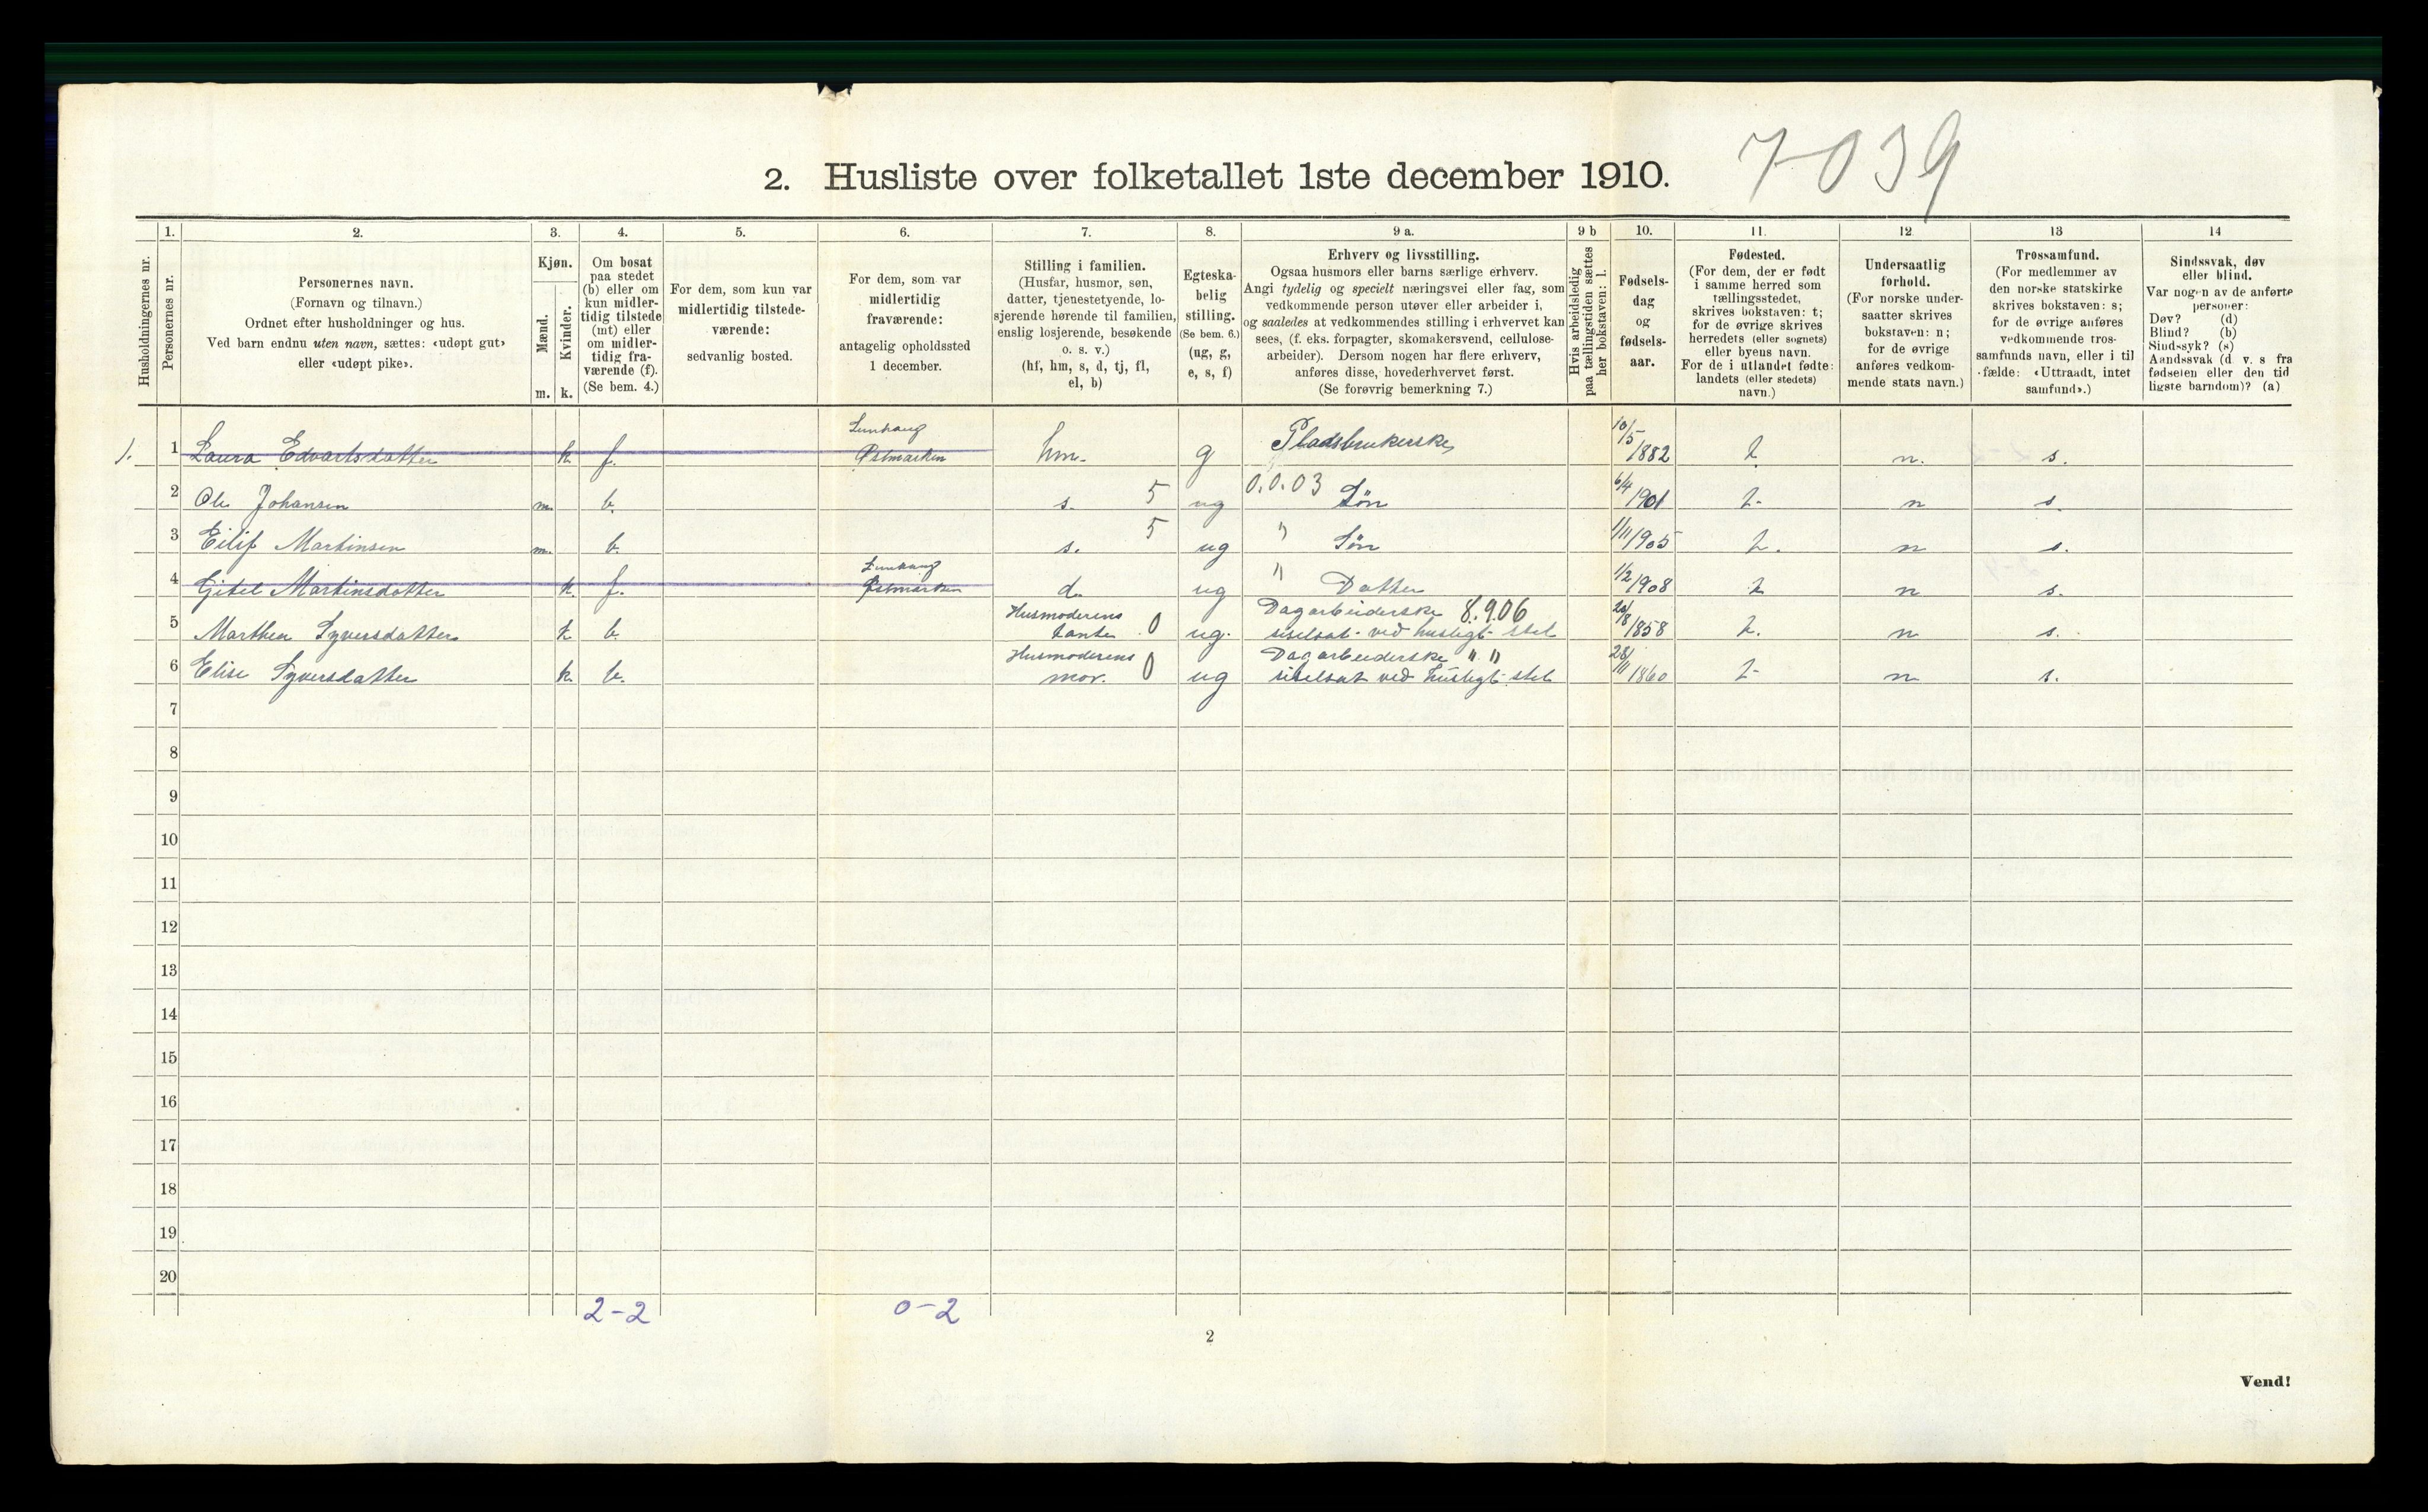 7-039
2. Husliste over folketallet 1ste december 1910.
Husholdningernes nr.
1.
Personernes nr.
2.
Personernes navn.
(Fornavn og tilnavn.)
Ordnet efter husholdninger og hus.
Ved barn endnu uten navn, sættes: «udøpt gut»
eller «udøpt pike».
3.
Kjøn.
Mænd.
Kvinder.
m. k.
4.
Om bosat
paa stedet
(b) eller om
kun midler-
tidig tilstede
(mt) eller
om midler-
tidig fra-
værende (f).
(Se bem. 4.)
5.
For dem, som kun var
midlertidig tilstede-
værende:
sedvanlig bosted.
6.
For dem, som var
midlertidig
fraværende:
antagelig opholdssted
1 december.
7.
Stilling i familien.
(Husfar, husmor, søn,
datter, tjenestetyende, lo-
sjerende hørende til familien,
enslig losjerende, besøkende
o. s. v.)
(hf, hm, s, d, tj, fl,
el, b)
8.
Egteska-
belig
stilling.
(Se bem. 6.)
(ug, g,
e, s, f)
9 a.
Erhverv og livsstilling.
Ogsaa husmors eller barns særlige erhverv.
Angi tydelig og specielt næringsvei eller fag, som
vedkommende person utøver eller arbeider i,
og saaledes at vedkommendes stilling i erhvervet kan
sees, (f. eks. forpagter, skomakersvend, cellulose-
arbeider). Dersom nogen har flere erhverv,
anføres disse, hovederhvervet først.
(Se forøvrig bemerkning 7.)
9 b
Hvis arbeidsledig
paa tællingstiden sættes
her bokstaven: l.
10.
Fødsels-
dag
og
fødsels-
aar.
11.
Fødested.
(For dem, der er født
i samme herred som
tællingsstedet,
skrives bokstaven: t;
for de øvrige skrives
herredets (eller sognets)
eller byens navn.
For de i utlandet fødte:
landets (eller stedets)
navn.)
12
Undersaatlig
forhold.
(For norske under-
saatter skrives
bokstaven: n;
for de øvrige
anføres vedkom-
mende stats navn.)
13
Trossamfund.
(For medlemmer av
den norske statskirke
skrives bokstaven: s;
for de øvrige anføres
vedkommende tros-
samfunds navn, eller i til
fælde: «Uttraadt, intet
samfund».)
14
Sindssvak, døv
eller blind.
Var nogen av de anførte
personer:
Døv? (d)
Blind? (b)
Sindssyk? (s)
Aandssvak (d v. s fra
fødselen eller den tid
ligste barndom)? (a)
1. 1 Laura Edvartsdatter k. f. Østmarken hm. g Pladsbrukerske 10/5 1882 t n. s.
2 Ole Johansen m. b. s. 5 ug 0.0.03 Søn 6/4 1901 t. n s.
3 Eilif Martinsen m. b. s. 5 ug " Søn 1/11 1905 t. n s.
4 Gitel Martinsdatter k. f. Østmarken d. ug " Datter 1/2 1908 t n s.
5 Marthea Syversdatter k b. Husmoderens tante 0 ug. Dagarbeiderske 8.9.06
ved husligt stel 20/8 1858 t. n s.
6 Elise Syversdatter k. b. Husmoderens mor. 0 ug Dagarbeiderske " "
ved husligt stel 28/11 1860 t n s.
7
8
9
10
11
12
13
14
15
16
17
18
19
20
2-2 0-2
2
Vend!